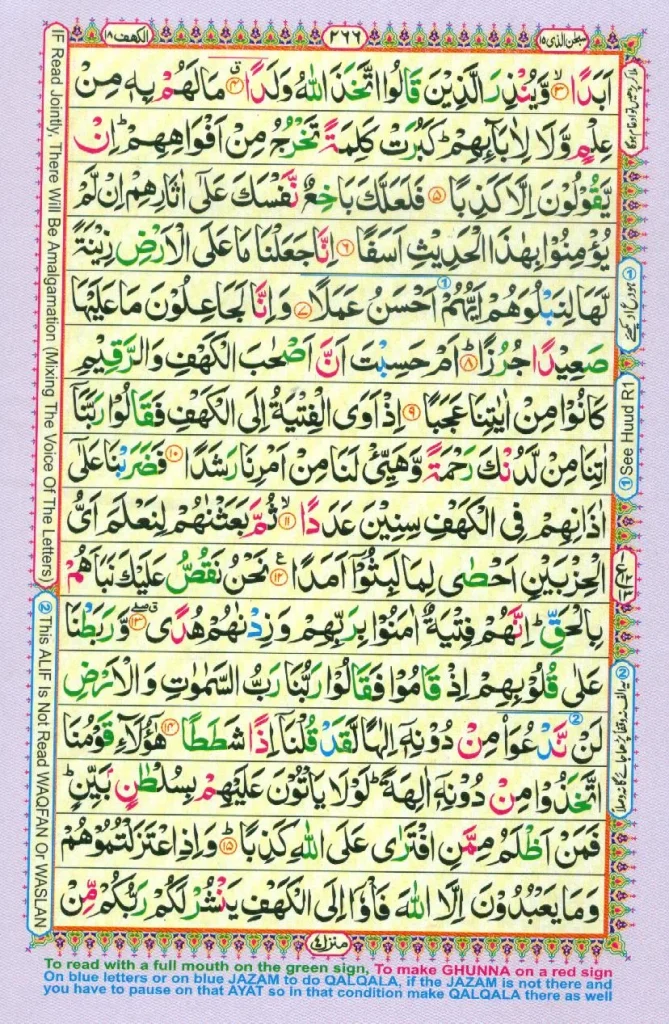 الكهف ١٨
٢٦٦
سبحٰن الذی ١٥
اَبَدًا ۙ﴿۳﴾ وَّیُنْذِرَ الَّذِیْنَ قَالُوا اتَّخَذَ اللّٰهُ وَلَدًا ۗ﴿۴﴾ مَا لَهُمْ بِهٖ مِنْ
عِلْمٍ وَّلَا لِاٰبَآئِهِمْ ؕ كَبُرَتْ كَلِمَةً تَخْرُجُ مِنْ اَفْوَاهِهِمْ ؕ اِنْ
یَّقُوْلُوْنَ اِلَّا كَذِبًا ﴿۵﴾ فَلَعَلَّكَ بَاخِعٌ نَّفْسَكَ عَلٰۤی اٰثَارِهِمْ اِنْ لَّمْ
یُؤْمِنُوْا بِهٰذَا الْحَدِیْثِ اَسَفًا ﴿۶﴾ اِنَّا جَعَلْنَا مَا عَلَی الْاَرْضِ زِیْنَةً
لَّهَا لِنَبْلُوَهُمْ اَیُّهُمْ ① اَحْسَنُ عَمَلًا ﴿۷﴾ وَ اِنَّا لَجَاعِلُوْنَ مَا عَلَیْهَا
صَعِیْدًا جُرُزًا ؕ﴿۸﴾ اَمْ حَسِبْتَ اَنَّ اَصْحٰبَ الْكَهْفِ وَالرَّقِیْمِ
كَانُوْا مِنْ اٰیٰتِنَا عَجَبًا ﴿۹﴾ اِذْ اَوَی الْفِتْیَةُ اِلَی الْكَهْفِ فَقَالُوْا رَبَّنَاۤ
اٰتِنَا مِنْ لَّدُنْكَ رَحْمَةً وَّهَیِّئْ لَنَا مِنْ اَمْرِنَا رَشَدًا ﴿۱۰﴾ فَضَرَبْنَا عَلٰۤی
اٰذَانِهِمْ فِی الْكَهْفِ سِنِیْنَ عَدَدًا ۙ﴿۱۱﴾ ثُمَّ بَعَثْنٰهُمْ لِنَعْلَمَ اَیُّ
الْحِزْبَیْنِ اَحْصٰی لِمَا لَبِثُوْۤا اَمَدًا ﴿۱۲﴾ ع نَحْنُ نَقُصُّ عَلَیْكَ نَبَاَهُمْ
بِالْحَقِّ ؕ اِنَّهُمْ فِتْیَةٌ اٰمَنُوْا بِرَبِّهِمْ وَ زِدْنٰهُمْ هُدًی ﴿۱۳﴾ وَّ رَبَطْنَا
عَلٰی قُلُوْبِهِمْ اِذْ قَامُوْا فَقَالُوْا رَبُّنَا رَبُّ السَّمٰوٰتِ وَ الْاَرْضِ
لَنْ نَّدْعُوَاۡ ② مِنْ دُوْنِهٖۤ اِلٰهًا لَّقَدْ قُلْنَاۤ اِذًا شَطَطًا ﴿۱۴﴾ هٰۤؤُلَآءِ قَوْمُنَا
اتَّخَذُوْا مِنْ دُوْنِهٖۤ اٰلِهَةً ؕ لَوْلَا یَاْتُوْنَ عَلَیْهِمْ بِسُلْطٰنٍۭ بَیِّنٍ ؕ
فَمَنْ اَظْلَمُ مِمَّنِ افْتَرٰی عَلَی اللّٰهِ كَذِبًا ؕ﴿۱۵﴾ وَ اِذِ اعْتَزَلْتُمُوْهُمْ
وَ مَا یَعْبُدُوْنَ اِلَّا اللّٰهَ فَاْوٗۤا اِلَی الْكَهْفِ یَنْشُرْ لَكُمْ رَبُّكُمْ مِّنْ
منزل ٤
IF Read Jointly, There Will Be Amalgamation (Mixing The Voice Of The Letters)
② This ALIF Is Not Read WAQFAN Or WASLAN
① See Huud R1
To read with a full mouth on the green sign, To make GHUNNA on a red sign
On blue letters or on blue JAZAM to do QALQALA, if the JAZAM is not there and
you have to pause on that AYAT so in that condition make QALQALA there as well